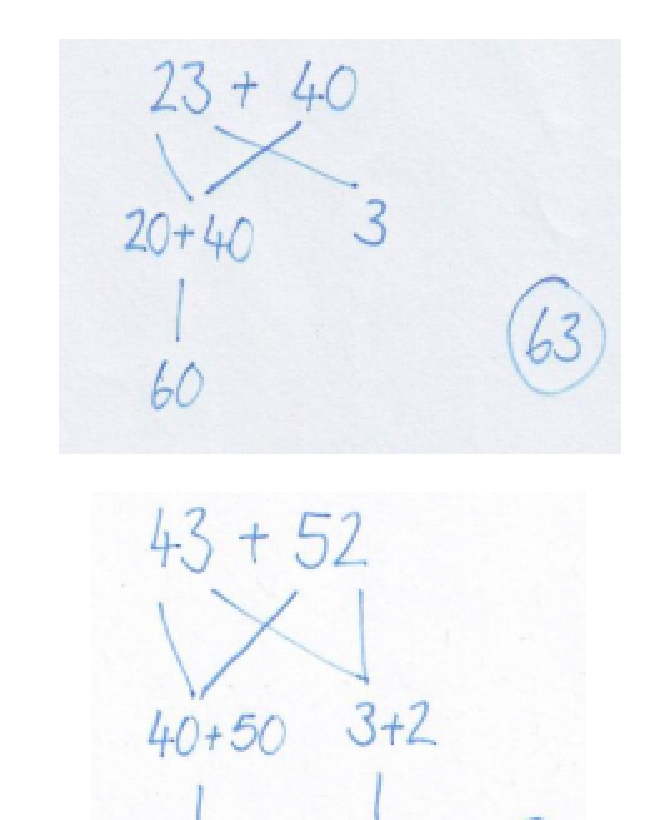 23 + 40
20+40 3
63
60
43 + 52
40+50 3+2